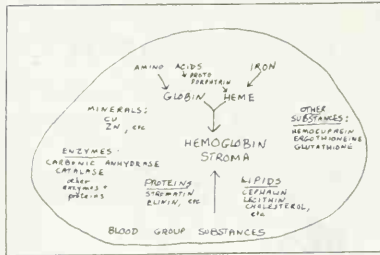 AMINO ACIDS IRON
PROTO
PORPHYRIN
GLOBIN HEME
MINERALS:
CU
ZN, etc
OTHER
SUBSTANCES:
HEMOCUPREIN
ERGOTHIONEINE
GLUTATHIONE
HEMOGLOBIN
STROMA
ENZYMES:
CARBONIC ANHYDRASE
CATALASE
other
enzymes +
proteins
PROTEINS
STROMATIN
ELININ, etc
LIPIDS
CEPHALIN
LECITHIN
CHOLESTEROL,
etc
BLOOD GROUP SUBSTANCES